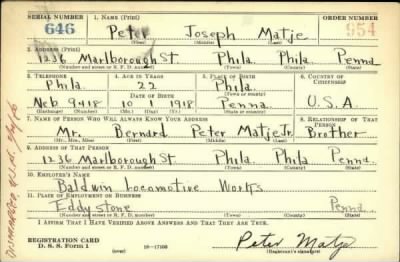 SERIAL NUMBER 1. NAME (Print) ORDER NUMBER
646 Peter Joseph Matje 954
(First) (Middle) (Last)
2. ADDRESS (Print)
1236 Marlborough St. Phila. Phila Penna
(Number and street or R. F. D. number) (Town) (County) (State)
3. TELEPHONE 4. AGE IN YEARS 5. PLACE OF BIRTH 6. COUNTRY OF CITIZENSHIP
Phila. 22 Phila.
DATE OF BIRTH
Neb 9418 10 1 1918 Penna. U.S.A.
(Exchange) (Number) (Mo.) (Day) (Yr.) (State or country)
7. NAME OF PERSON WHO WILL ALWAYS KNOW YOUR ADDRESS 8. RELATIONSHIP OF THAT PERSON
Mr. Bernard Peter Matje Jr. Brother
(Mr., Mrs., Miss) (First) (Middle) (Last)
9. ADDRESS OF THAT PERSON
1236 Marlborough St. Phila Phila Penna.
(Number and street or R. F. D. number) (Town) (County) (State)
10. EMPLOYER'S NAME
Baldwin Locomotive Works
11. PLACE OF EMPLOYMENT OR BUSINESS
Eddystone Penna.
(Number and street or R. F. D. number) (Town) (County) (State)
I AFFIRM THAT I HAVE VERIFIED ABOVE ANSWERS AND THAT THEY ARE TRUE.
REGISTRATION CARD
D. S. S. Form 1 (over) 16-17105
Peter Matje
(Registrant's signature)